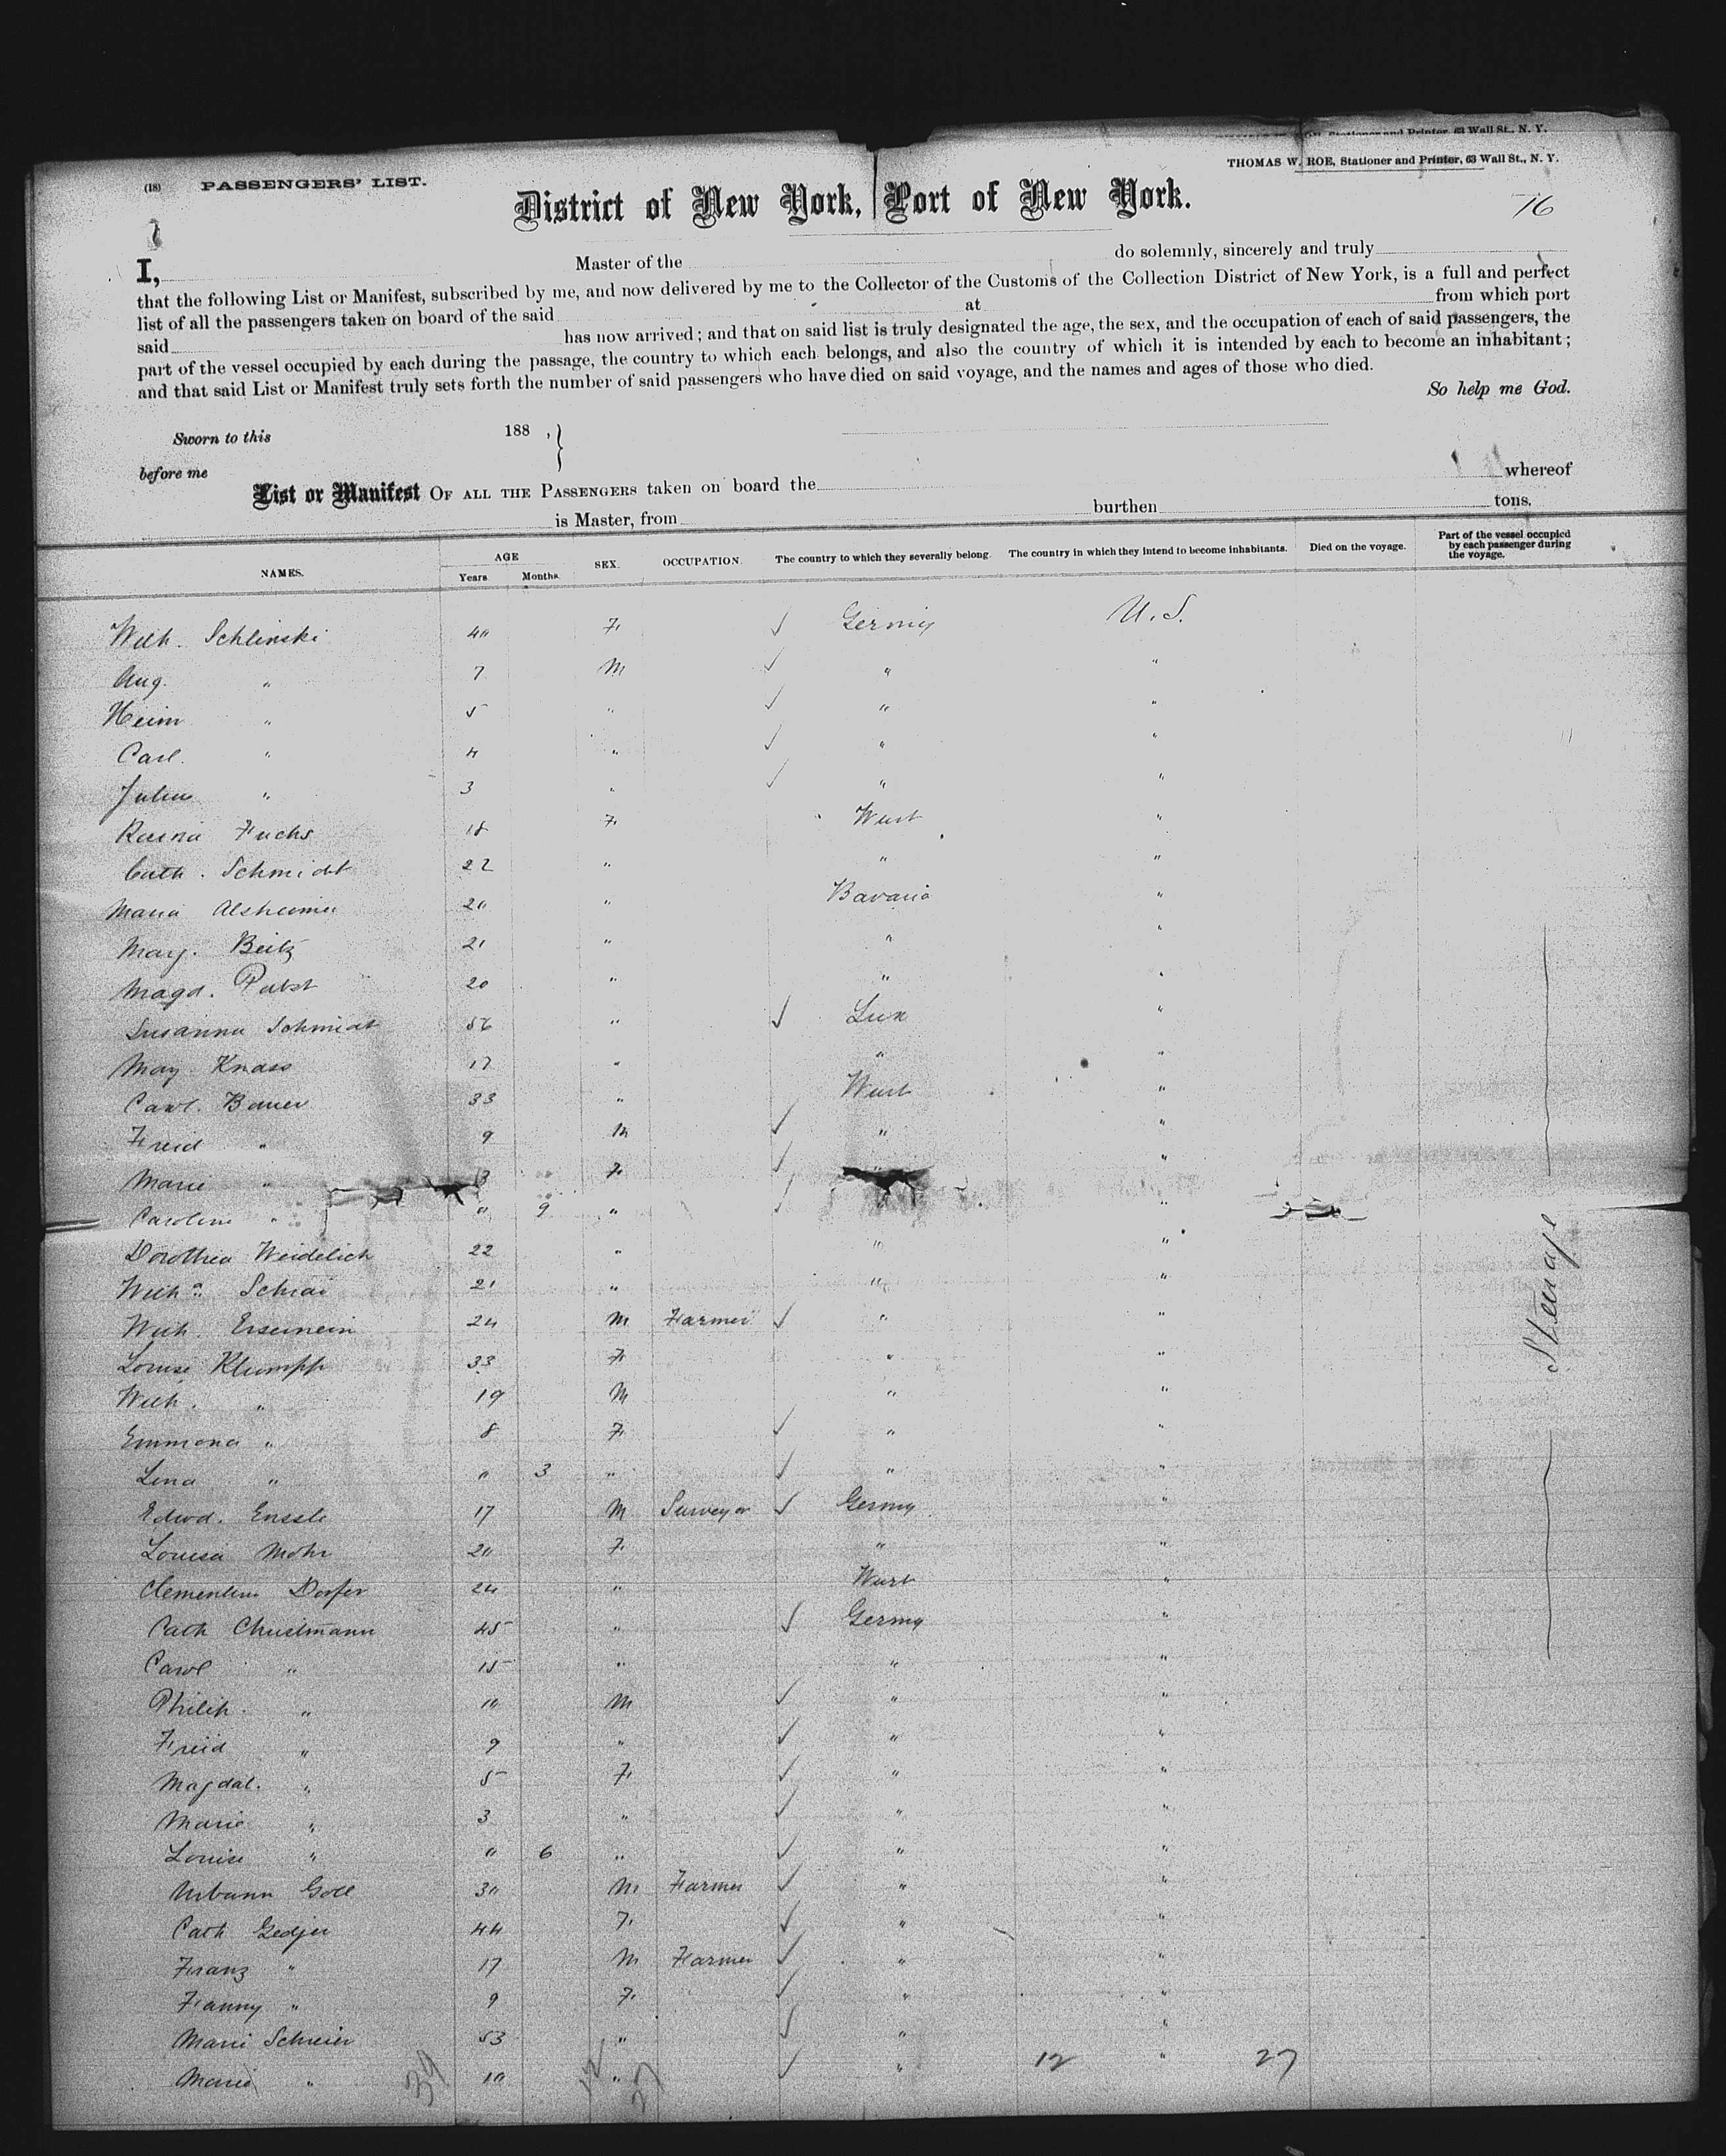 Stationer and Printer, 63 Wall St., N. Y.
THOMAS W. ROE, Stationer and Printer, 63 Wall St., N. Y.
(18) PASSENGERS' LIST.
District of New York, Port of New York.
76
I, Master of the do solemnly, sincerely and truly
that the following List or Manifest, subscribed by me, and now delivered by me to the Collector of the Customs of the Collection District of New York, is a full and perfect
list of all the passengers taken on board of the said at from which port
said has now arrived; and that on said list is truly designated the age, the sex, and the occupation of each of said passengers, the
part of the vessel occupied by each during the passage, the country to which each belongs, and also the country of which it is intended by each to become an inhabitant;
and that said List or Manifest truly sets forth the number of said passengers who have died on said voyage, and the names and ages of those who died.
So help me God.
Sworn to this 188 , }
before me
List or Manifest OF ALL THE PASSENGERS taken on board the whereof
is Master, from burthen tons.
NAMES. AGE Years. Months. SEX. OCCUPATION. The country to which they severally belong. The country in which they intend to become inhabitants. Died on the voyage. Part of the vessel occupied by each passenger during the voyage.
Wilh. Schlinski 40 F ✓ Germy U.S.
Aug. " 7 M ✓ " "
Heinr " 5 " ✓ " "
Carl. " 4 " ✓ " "
Julius " 3 " ✓ " "
Fuchs 18 F Wurt "
Cath. Schmidt 22 " " "
Maria Alsheimer 20 " Bavaria "
Marg. Beitz 21 " " "
Magd. Pabst 20 " " "
Susanna Schmidt 56 " ✓ Lux "
Marg Knass 17 " " "
Carol. Bauer 33 " Wurt "
Fried " 9 M ✓ " "
Marie " 3 F ✓ "
Caroline " " 9 " ✓ "
Dorothea Weidelich 22 " " "
Wilha. Schrai 21 " " "
Wilh. 24 M Farmer ✓ " "
Louise Klumpp 33 F " "
Wilh. " 19 M " "
Emmona " 8 F ✓ " "
Lina " " 3 " ✓ " "
Edwd. Enssle 17 M Surveyor ✓ Germy "
Louisa Mohr 20 F " "
Clementine Dorfer 24 " Wurt "
Cath Christmann 45 " ✓ Germy "
Carol " 15 " " "
Philip. " 10 M ✓ " "
Fried " 9 " ✓ " "
Magdal. " 5 F ✓ " "
Marie " 3 " ✓ " "
Louise " " 6 " ✓ " "
Urbann Goll 30 M Farmer ✓ " "
Cath Gedjer 44 F ✓ " "
Franz " 17 M Farmer ✓ " "
Fanny " 9 F ✓ " "
Marie Schreier 53 " ✓ " "
Marie " 10 " ✓ " "
Steerage
39 12 27 12 27